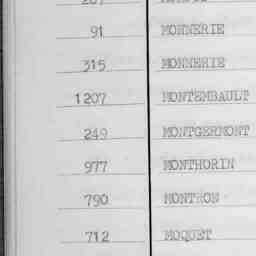 91 MONNERIE
315 MONNERIE
1207 MONTEMBAULT
249 MONTGERMONT
977 MONTHORIN
790 MONTRON
712 MOQUET